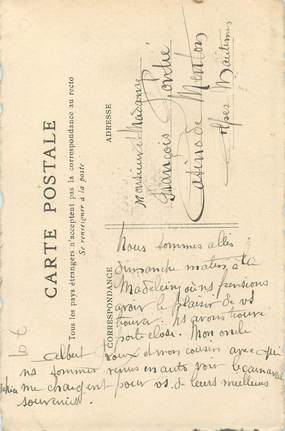 CARTE POSTALE
Tous les pays étrangers n'acceptent pas la correspondance au recto
Se renseigner à la poste
CORRESPONDANCE
ADRESSE
Monsieur et Madame
François
Casino de Menton
Alpes Maritimes
Nous sommes allés
dimanche matin, à la
Madeleine où ns pensions
avoir le plaisir de vs
trouver. Ns avons trouvé
porte close. Mon oncle
Albert Roux et mon cousin avec qui
ns sommes venus en auto voir le carnaval
me chargent pour vs de leurs meilleurs
souvenirs.